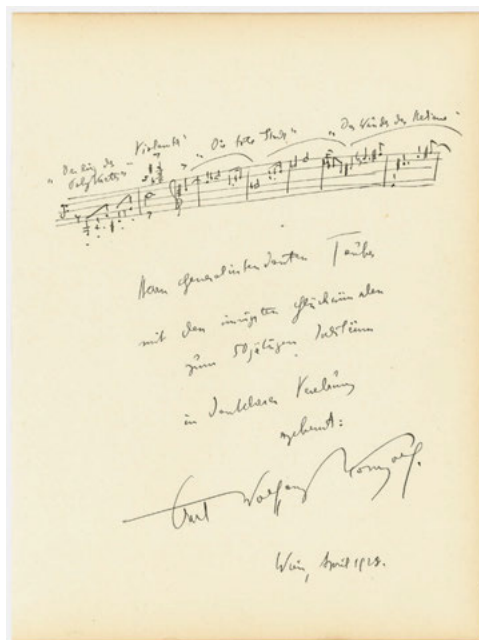 "Der Ring des Polykrates" "Violanta" "Die tote Stadt" "Das Wunder der Heliane"
Herrn Generalintendanten Tauber
mit den innigsten Glückwünschen
zum 50jährigen Jubiläum
in dankbarer Verehrung
ergebenst:
Erich Wolfgang Korngold.
Wien, April 1928.